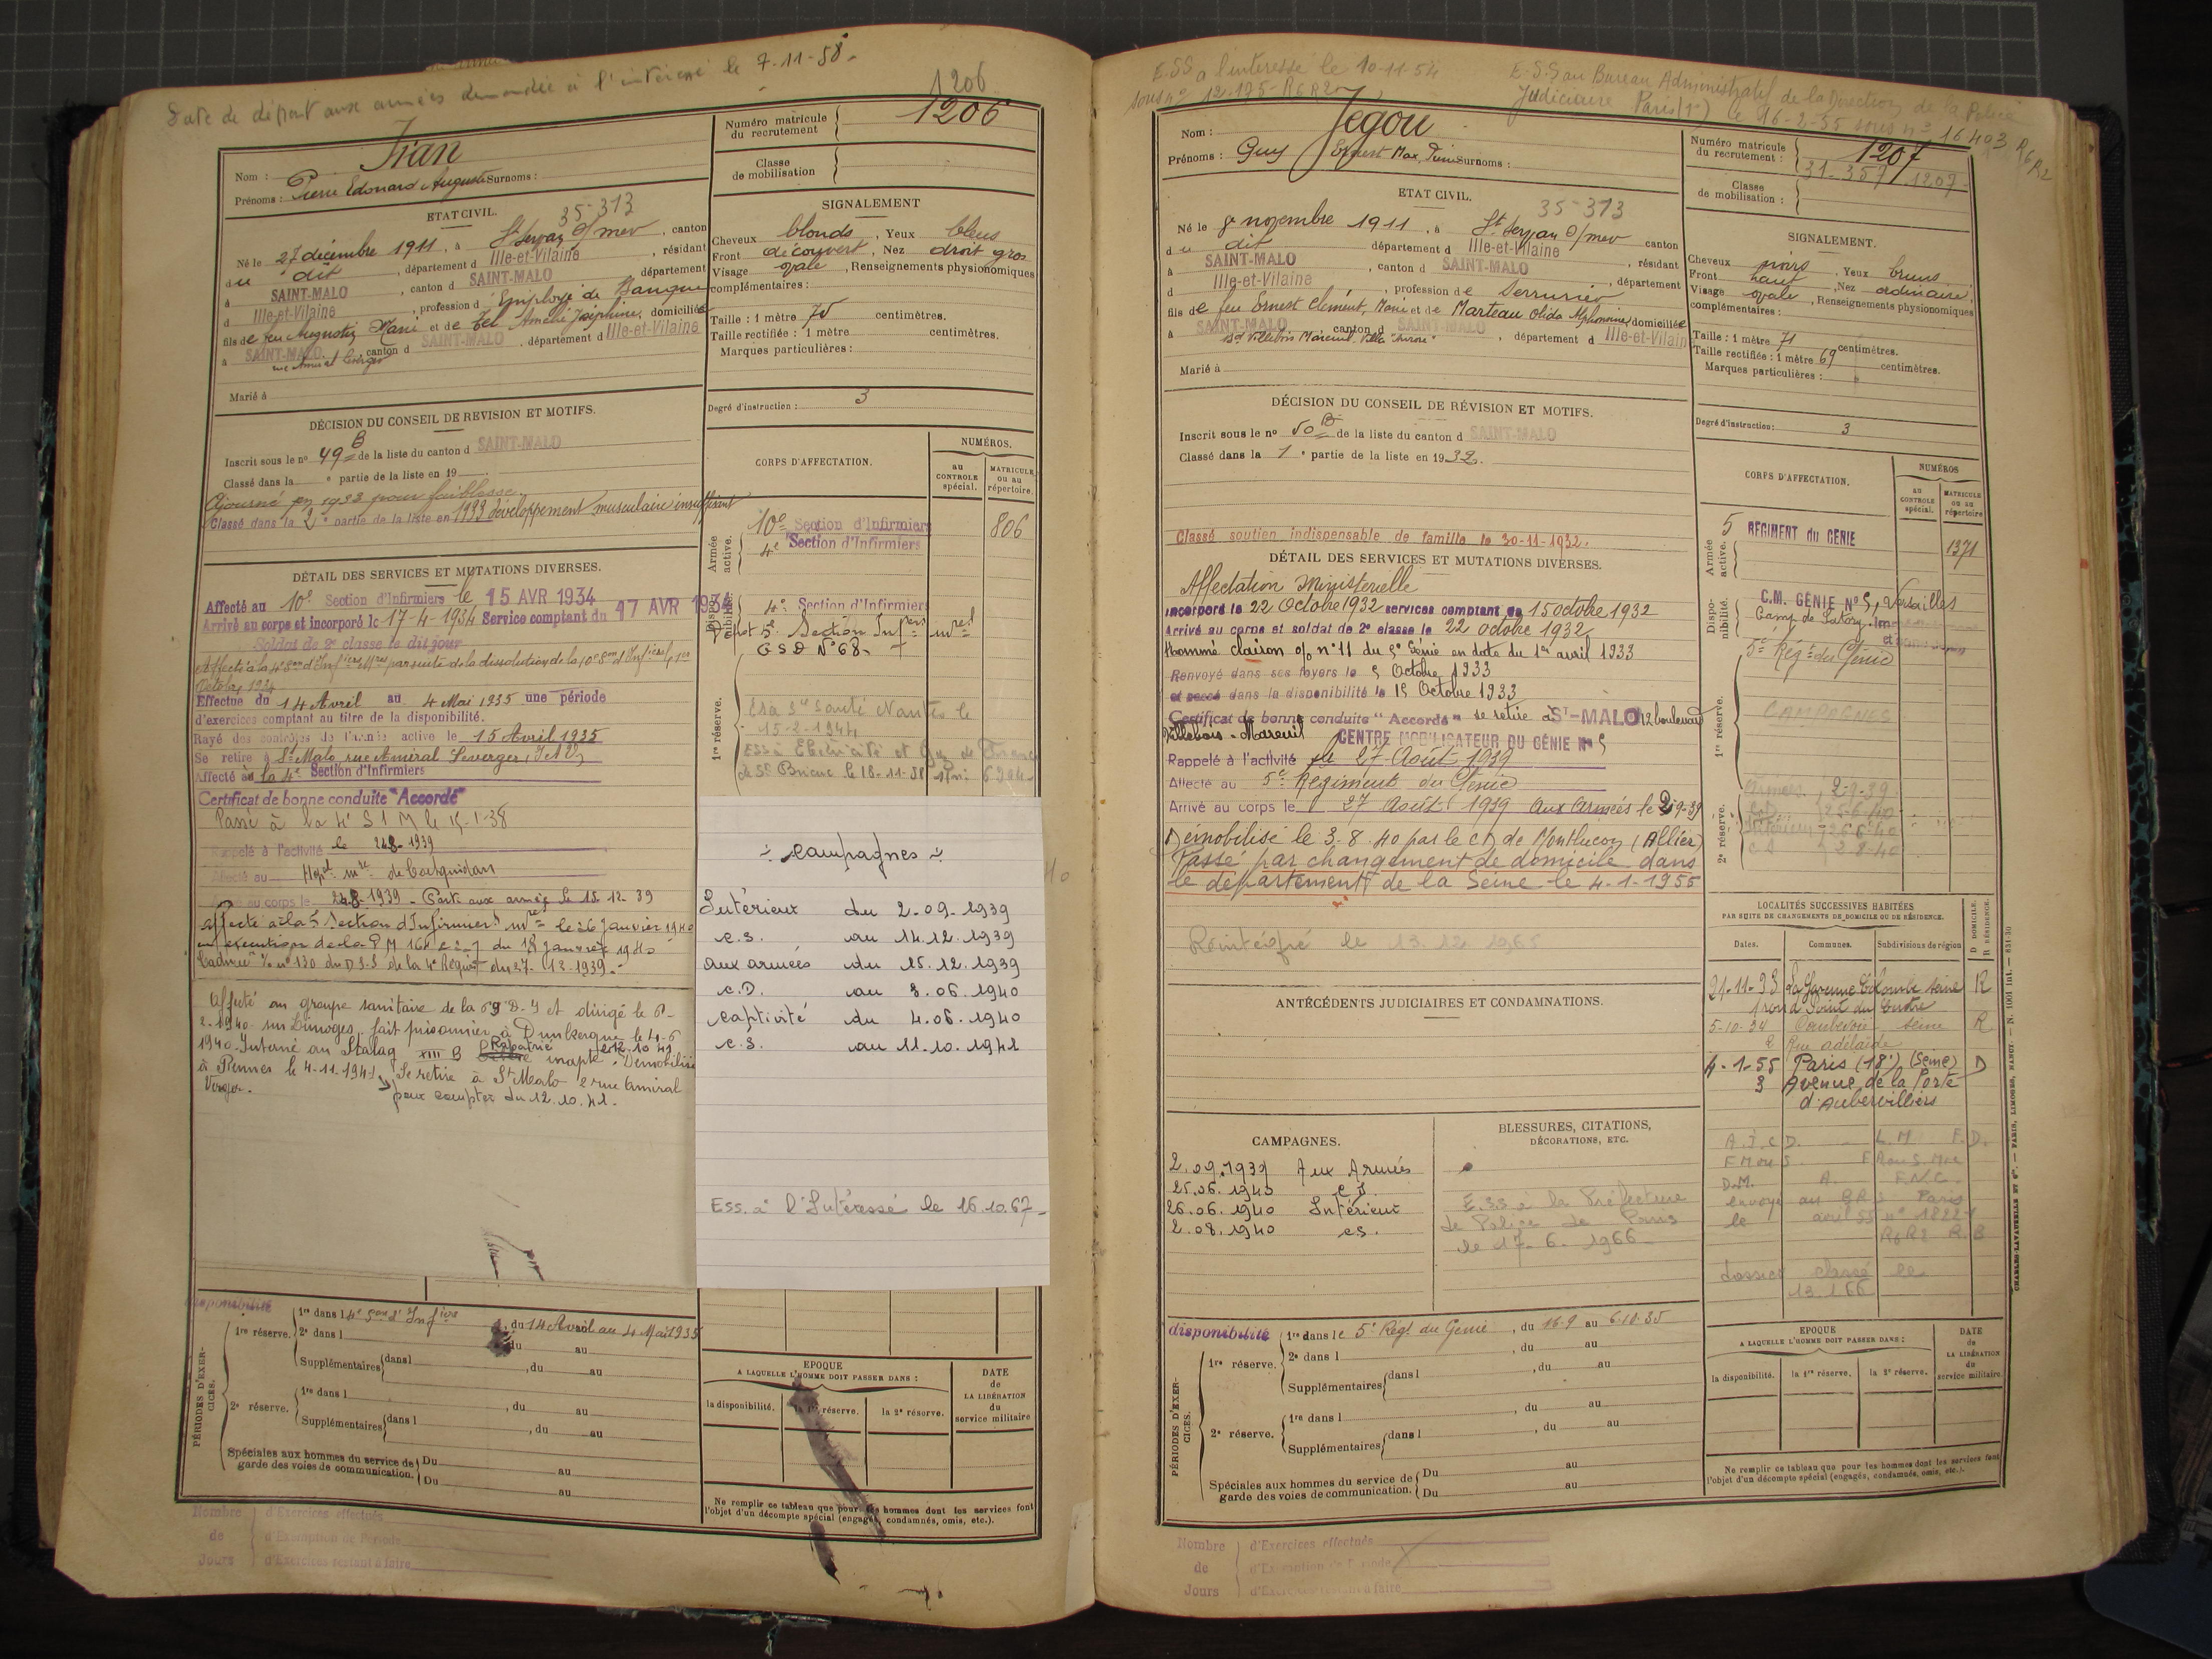 Date de départ aux armées demandée à l'intéressé le 7-11-58.
1206
Numéro matricule du recrutement 1206
Classe de mobilisation
Nom : Jran
Prénoms : Pierre Edouard Auguste Surnoms :
ETAT CIVIL. 35-313
Né le 27 décembre 1911, à St Servan s/mer, canton
du dit, département d Ille-et-Vilaine, résidant
à SAINT-MALO, canton d SAINT-MALO, département
d Ille-et-Vilaine, profession d Employé de Banque
fils de feu Augustin Marie et de Amélie Joséphine, domiciliés
à SAINT-MALO, canton d SAINT-MALO, département d Ille-et-Vilaine
Marié à
SIGNALEMENT
Cheveux blonds, Yeux bleus
Front découvert, Nez droit gros
Visage ovale, Renseignements physionomiques
complémentaires :
Taille : 1 mètre 70 centimètres.
Taille rectifiée : 1 mètre centimètres.
Marques particulières :
Degré d'instruction : 3
DÉCISION DU CONSEIL DE REVISION ET MOTIFS.
Inscrit sous le nº 49 B de la liste du canton d SAINT-MALO
Classé dans la e partie de la liste en 19
Ajourné en 1932 pour faiblesse.
Classé dans la 2e partie de la liste en 1933 développement musculaire insuffisant
CORPS D'AFFECTATION.
NUMÉROS.
au CONTROLE spécial.
MATRICULE ou au répertoire.
Armée active.
10e Section d'Infirmiers 806
4e Section d'Infirmiers
Disponibilité.
4e Section d'Infirmiers
Dépôt 5e Section Infiers mres
G S D Nº 68
1re réserve.
Ess Sce Santé Nantes le
15-2-1944
ESS à Electricité et Gaz de France
de St Brieuc le 18-11-58
DÉTAIL DES SERVICES ET MUTATIONS DIVERSES.
Affecté au 10e Section d'Infirmiers le 15 AVR 1934
Arrivé au corps et incorporé le 17-4-1934 Service comptant du 17 AVR 1934
Soldat de 2e classe le dit jour
Affecté à la 4e Son d'Infiers Mres par suite de la dissolution de la 10e Son d'Infiers le 1er
Octobre 1934
Effectue du 14 Avril au 4 Mai 1935 une période
d'exercices comptant au titre de la disponibilité.
Rayé des contrôles de l'armée active le 15 Avril 1935
Se retire à St Malo, rue Amiral Leverger (I et V)
Affecté à la 4e Section d'Infirmiers
Certificat de bonne conduite "Accordé"
Passé à la 4e S I M le 15-1-38
Rappelé à l'activité le 24-8-1939
Affecté au Hopal mre de Coëtquidan
Arrivé au corps le 24-8-1939 - Parti aux armées le 15-12-39
affecté à la 5 Section d'Infirmiers mres le 26 janvier 1940
en exécution de la D M 161 du 18 janvier 1940
Affecté au groupe sanitaire de la 68 D.I et dirigé le
2-1940 sur Limoges, fait prisonnier à Dunkerque le 4-6
1940. Interné au Stalag XIII B Rapatrié 12.10.41 inapte. Démobilisé
à Rennes le 4-11-1941 Se retire à St Malo 2 rue Amiral
Verger. pour compter du 12.10.41.
Campagnes
Intérieur du 2.09.1939
c.s. au 14.12.1939
aux armées du 15.12.1939
C.D. au 3.06.1940
Captivité du 4.06.1940
c.s. au 11.10.1941
ESS. à l'Intéressé le 16.10.67.
disponibilité
PÉRIODES D'EXERCICES.
1re réserve.
1re dans l 4e Son d'Infiers, du 14 Avril au 4 Mai 1935
2e dans l , du au
Supplémentaires dans l , du au
2e réserve.
1re dans l , du au
Supplémentaires dans l , du au
Spéciales aux hommes du service de garde des voies de communication.
Du au
Du au
EPOQUE A LAQUELLE L'HOMME DOIT PASSER DANS :
la disponibilité.
la 1re réserve.
la 2e réserve.
DATE de LA LIBÉRATION du service militaire
Ne remplir ce tableau que pour les hommes dont les services font
l'objet d'un décompte spécial (engagés, condamnés, omis, etc.).
Nombre de Jours
d'Exercices effectués
d'Exemption de Période
d'Exercices restant à faire
E.SS à l'intéressé le 10-11-54
sous nº 12-195-R6R2
E.S.S au Bureau Administratif de la Direction de la Police
Judiciaire Paris (1er) le 16-2-55 sous nº 16403 R6 R2
Nom : Jégou
Prénoms : Guy Ernest Max, Pierre Surnoms :
Numéro matricule du recrutement : 1207
31-357-1207-
Classe de mobilisation :
ETAT CIVIL. 35-313
Né le 8 novembre 1911, à St Servan s/mer canton
du dit département d Ille-et-Vilaine, résidant
à SAINT-MALO, canton d SAINT-MALO, département
d Ille-et-Vilaine, profession de Serrurier
fils de feu Ernest Clément, Marie et de Marteau Olida Alphonsine, domiciliée
à SAINT-MALO canton d SAINT-MALO, département d Ille-et-Vilaine
Bd Villebois Mareuil, Villa "Aurore"
Marié à
SIGNALEMENT.
Cheveux noirs, Yeux bruns
Front haut, Nez ordinaire,
Visage ovale, Renseignements physionomiques
complémentaires :
Taille : 1 mètre 71 centimètres.
Taille rectifiée : 1 mètre 69 centimètres.
Marques particulières :
Degré d'instruction : 3
DÉCISION DU CONSEIL DE RÉVISION ET MOTIFS.
Inscrit sous le nº 50 B de la liste du canton d SAINT-MALO
Classé dans la 1e partie de la liste en 1932.
Classé soutien indispensable de famille le 30-11-1932.
CORPS D'AFFECTATION.
NUMÉROS
au CONTROLE spécial.
MATRICULE ou au répertoire
Armée active.
5 REGIMENT du GENIE 1371
Disponibilité.
C.M. GÉNIE Nº 5, Versailles
Camp de Satory
5e Régt du Génie
1re réserve.
CAMPAGNE
2e réserve.
Armées 2-9-39
25-6-40
Intérieur 26-6-40
C.S. 2-8-40
DÉTAIL DES SERVICES ET MUTATIONS DIVERSES.
Affectation Ministerielle
Incorporé le 22 Octobre 1932 services comptant du 15 octobre 1932
Arrivé au corps et soldat de 2e classe le 22 octobre 1932
Nommé clairon o/o nº 11 du 5e Génie en date du 1er avril 1933
Renvoyé dans ses foyers le 5 Octobre 1933
et passé dans la disponibilité le 15 Octobre 1933
Certificat de bonne conduite "Accordé" se retire à ST-MALO 12 boulevard
Villebois-Mareuil CENTRE MOBILISATEUR DU GÉNIE Nº 5
Rappelé à l'activité le 27 Août 1939
Affecté au 5e Régiment du Génie
Arrivé au corps le 27 Août 1939 Aux Armées le 2-9-39
Démobilisé le 3.8.40 par le CD de Montluçon (Allier)
Passé par changement de domicile dans
le département de la Seine le 4-1-1955
Réintégré le 13.12.1965
ANTÉCÉDENTS JUDICIAIRES ET CONDAMNATIONS.
LOCALITÉS SUCCESSIVES HABITÉES
PAR SUITE DE CHANGEMENTS DE DOMICILE OU DE RÉSIDENCE.
Dates.
Communes.
Subdivisions de région
D DOMICILE. R RÉSIDENCE.
21-11-33 La Garenne Colombe Seine R
1 rond Point du Centre
5-10-34 Courbevoie Seine R
Rue adélaïde
4-1-55 Paris (18e) (Seine) D
3 Avenue de la Porte
d'Aubervilliers
envoyé au Paris
dossier classé le
13.1.66
CAMPAGNES.
2.09.1939 Aux Armées
25.06.1940 C D.
26.06.1940 Intérieur
2.08.1940 cs.
BLESSURES, CITATIONS,
DÉCORATIONS, ETC.
E.SS à la Préfecture
de Police de Paris
le 17-6-1966
disponibilité
PÉRIODES D'EXERCICES.
1re réserve.
1re dans le 5e Régt du Génie, du 16-9 au 6-10-35
2e dans l , du au
Supplémentaires dans l , du au
2e réserve.
1re dans l , du au
Supplémentaires dans l , du au
Spéciales aux hommes du service de garde des voies de communication.
Du au
Du au
EPOQUE A LAQUELLE L'HOMME DOIT PASSER DANS :
la disponibilité.
la 1re réserve.
la 2e réserve.
DATE de LA LIBÉRATION du service militaire.
Ne remplir ce tableau que pour les hommes dont les services font
l'objet d'un décompte spécial (engagés, condamnés, omis, etc.).
CHARLES-LAVAUZELLE ET Cie. — PARIS, LIMOGES, NANCY
Nombre de Jours
d'Exercices effectués
d'Exemption de Période
d'Exercices restant à faire